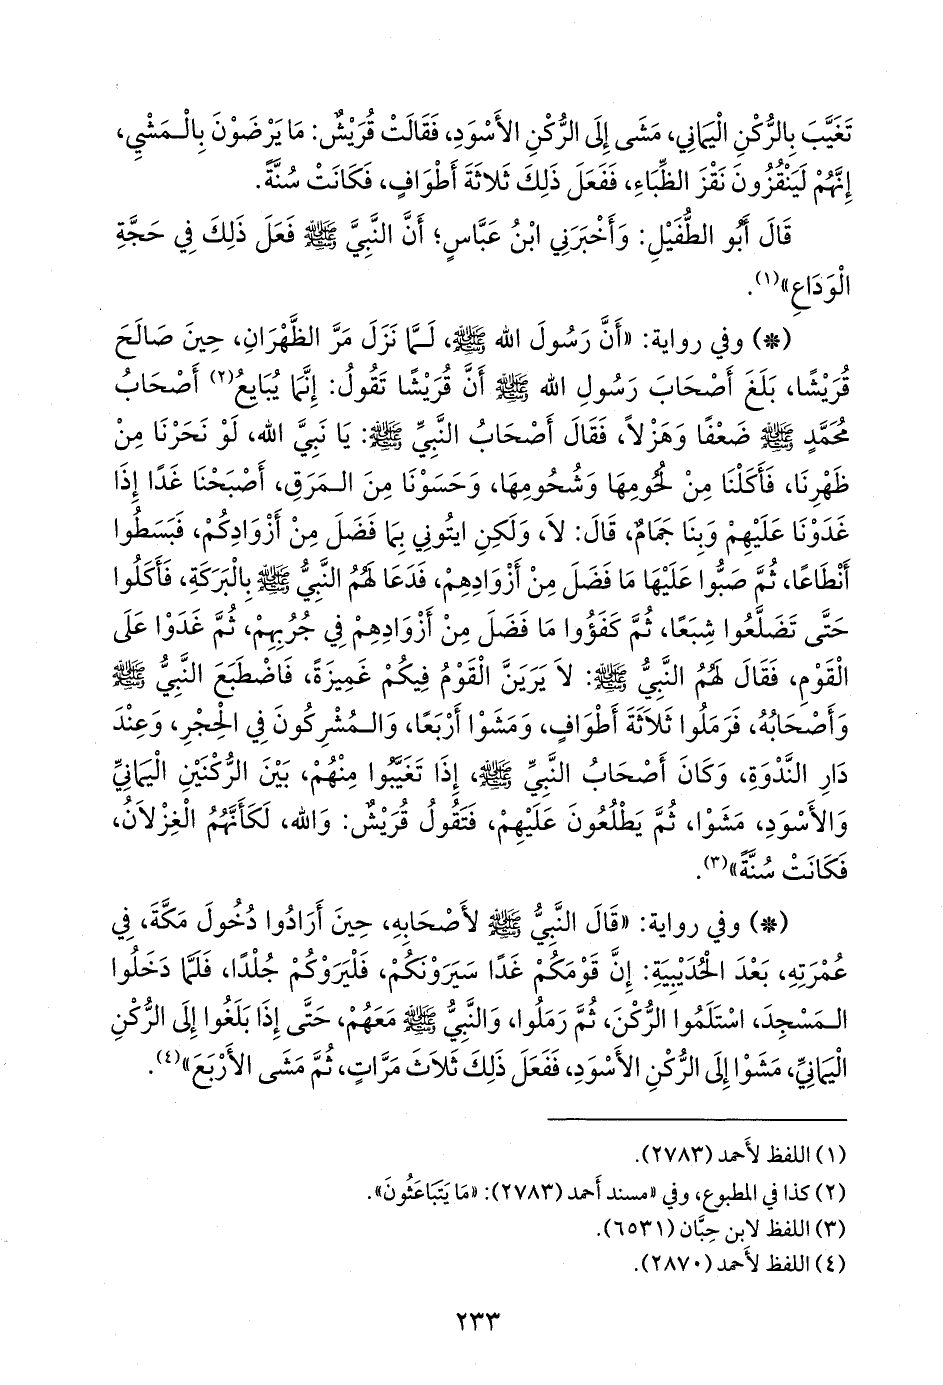 تَغَيَّبَ بِالرُّكْنِ الْيَمَانِي، مَشَى إِلَى الرُّكْنِ الأَسْوَدِ، فَقَالَتْ قُرَيْشٌ: مَا يَرْضَوْنَ بِالْـمَشْيِ،
إِنَّهُمْ لَيَنْقُزُونَ نَقْزَ الظِّبَاءِ، فَفَعَلَ ذَلِكَ ثَلاثَةَ أَطْوَافٍ، فَكَانَتْ سُنَّةً.
قَالَ أَبُو الطُّفَيْلِ: وَأَخْبَرَنِي ابْنُ عَبَّاسٍ؛ أَنَّ النَّبِيَّ ﷺ فَعَلَ ذَلِكَ فِي حَجَّةِ
الْوَدَاعِ»(١).
(*) وفي رواية: «أَنَّ رَسُولَ الله ﷺ، لَـمَّا نَزَلَ مَرَّ الظَّهْرَانِ، حِينَ صَالَحَ
قُرَيْشًا، بَلَغَ أَصْحَابَ رَسُولِ الله ﷺ أَنَّ قُرَيْشًا تَقُولُ: إِنَّمَا يُبَايِعُ(٢) أَصْحَابُ
مُحَمَّدٍ ﷺ ضَعْفًا وَهَزْلاً، فَقَالَ أَصْحَابُ النَّبِيِّ ﷺ: يَا نَبِيَّ الله، لَوْ نَحَرْنَا مِنْ
ظَهْرِنَا، فَأَكَلْنَا مِنْ لُحُومِهَا وَشُحُومِهَا، وَحَسَوْنَا مِنَ الـمَرَقِ، أَصْبَحْنَا غَدًا إِذَا
غَدَوْنَا عَلَيْهِمْ وَبِنَا جَمَامٌ، قَالَ: لاَ، وَلَكِنِ ايتُونِي بِمَا فَضَلَ مِنْ أَزْوَادِكُمْ، فَبَسَطُوا
أَنْطَاعًا، ثُمَّ صَبُّوا عَلَيْهَا مَا فَضَلَ مِنْ أَزْوَادِهِمْ، فَدَعَا لَهُمُ النَّبِيُّ ﷺ بِالْبَرَكَةِ، فَأَكَلُوا
حَتَّى تَضَلَّعُوا شِبَعًا، ثُمَّ كَفَؤُوا مَا فَضَلَ مِنْ أَزْوَادِهِمْ فِي جُرُبِهِمْ، ثُمَّ غَدَوْا عَلَى
الْقَوْمِ، فَقَالَ لَهُمُ النَّبِيُّ ﷺ: لاَ يَرَيَنَّ الْقَوْمُ فِيكُمْ غَمِيزَةً، فَاضْطَبَعَ النَّبِيُّ ﷺ
وَأَصْحَابُهُ، فَرَمَلُوا ثَلاَثَةَ أَطْوَافٍ، وَمَشَوْا أَرْبَعًا، وَالـمُشْرِكُونَ فِي الْحِجْرِ، وَعِنْدَ
دَارِ النَّدْوَةِ، وَكَانَ أَصْحَابُ النَّبِيِّ ﷺ، إِذَا تَغَيَّبُوا مِنْهُمْ، بَيْنَ الرُّكْنَيْنِ الْيَمَانِيِّ
وَالأَسْوَدِ، مَشَوْا، ثُمَّ يَطْلُعُونَ عَلَيْهِمْ، فَتَقُولُ قُرَيْشٌ: وَالله، لَكَأَنَّهُمُ الْغِزْلاَنُ،
فَكَانَتْ سُنَّةً»(٣).
(*) وفي رواية: «قَالَ النَّبِيُّ ﷺ لأَصْحَابِهِ، حِينَ أَرَادُوا دُخُولَ مَكَّةَ، فِي
عُمْرَتِهِ، بَعْدَ الْحُدَيْبِيَةِ: إِنَّ قَوْمَكُمْ غَدًا سَيَرَوْنَكُمْ، فَلْيَرَوْكُمْ جُلْدًا، فَلَمَّا دَخَلُوا
الـمَسْجِدَ، اسْتَلَمُوا الرُّكْنَ، ثُمَّ رَمَلُوا، وَالنَّبِيُّ ﷺ مَعَهُمْ، حَتَّى إِذَا بَلَغُوا إِلَى الرُّكْنِ
الْيَمَانِيِّ، مَشَوْا إِلَى الرُّكْنِ الأَسْوَدِ، فَفَعَلَ ذَلِكَ ثَلاَثَ مَرَّاتٍ، ثُمَّ مَشَى الأَرْبَعَ»(٤).
(١) اللفظ لأَحمد (٢٧٨٣).
(٢) كذا في المطبوع، وفي «مسند أَحمد (٢٧٨٣): «مَا يَتَبَاعَثُونَ».
(٣) اللفظ لابن حِبَّان (٦٥٣١).
(٤) اللفظ لأَحمد (٢٨٧٠).
٢٣٣